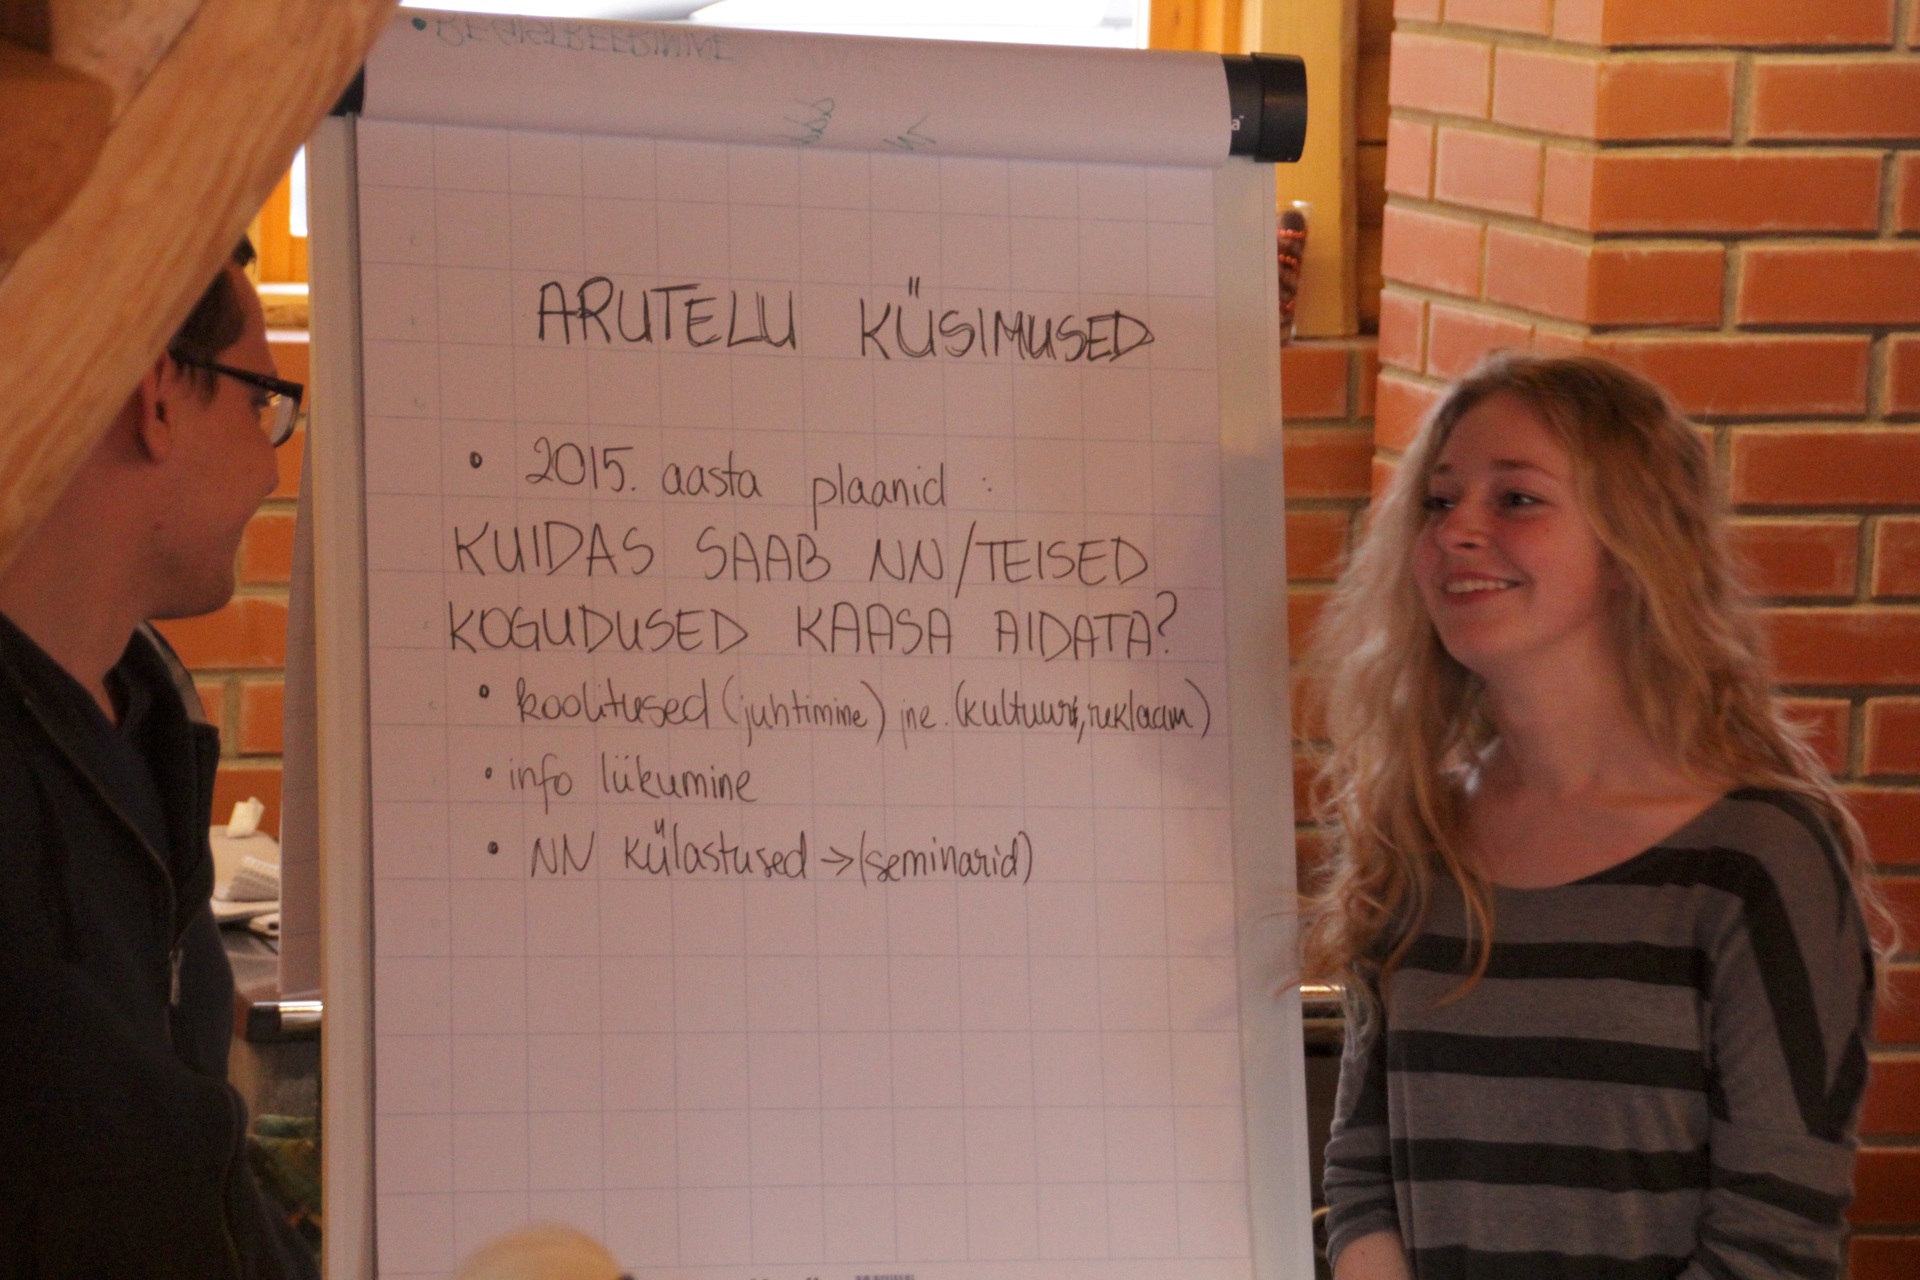 • REGISTREERIMINE
ARUTELU KÜSIMUSED
• 2015. aasta plaanid :
KUIDAS SAAB NN/TEISED
KOGUDUSED KAASA AIDATA?
• koolitused (juhtimine) jne. (kultuur, reklaam)
• info liikumine
• NN külastused → (seminarid)